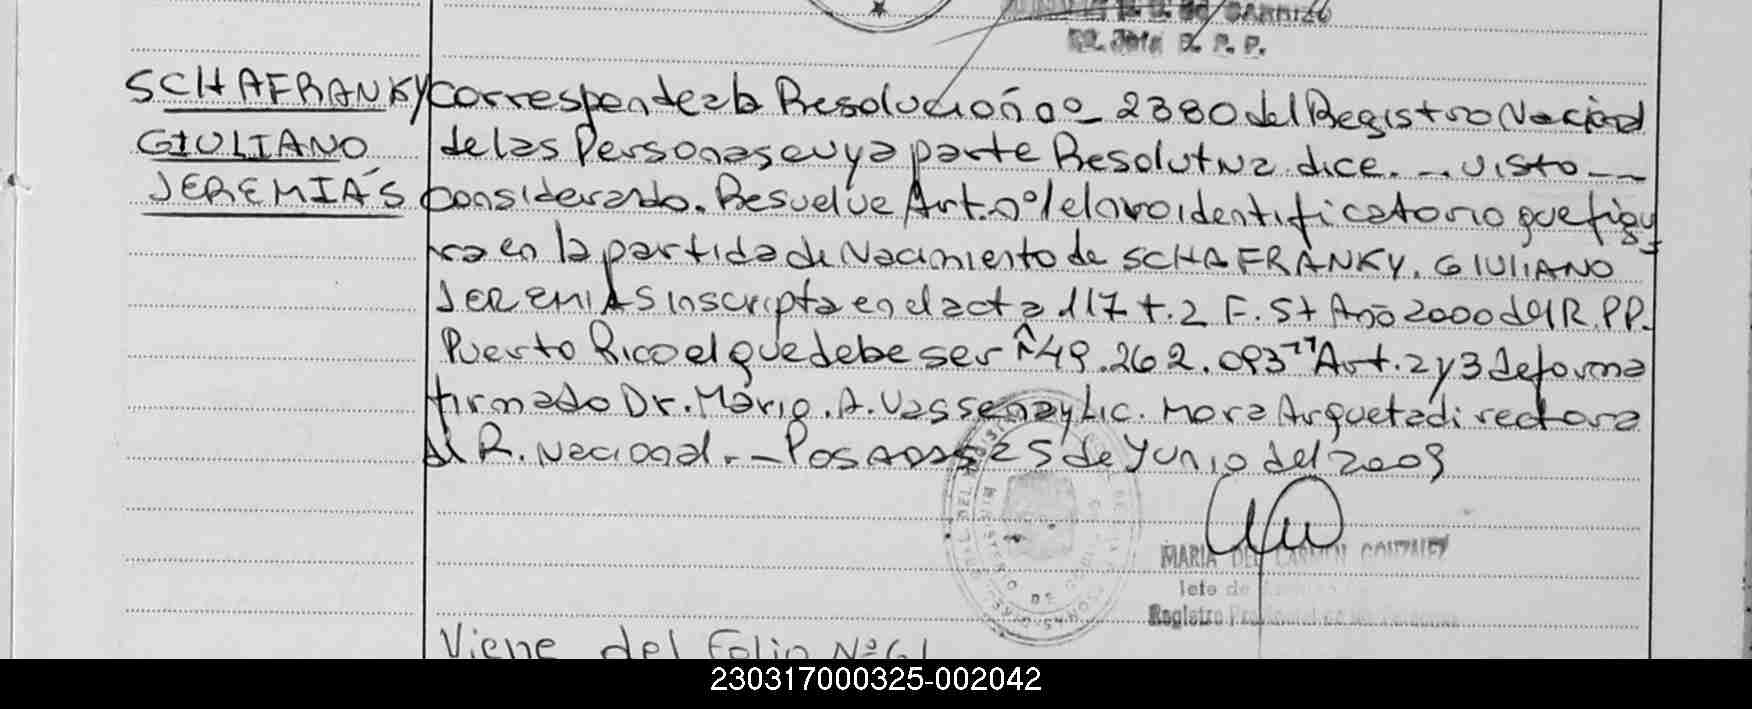 RR. Jefa R. P. P.
SCHAFRANKY
GIULIANO
JEREMIAS
Corresponde a la Resolución nº 2380 del Registro Nacional
de las Personas cuya parte Resolutiva dice. -- visto --
Considerando. Resuelve Art. nº 1 el nro identificatorio que figu
ra en la partida de Nacimiento de SCHAFRANKY. GIULIANO
JEREMIAS inscripta en el acta 117 t. 2 F. 5t Año 2000 del R.PP.
Puerto Rico el que debe ser "49.262.093" Art. 2 y 3 de forma
firmado Dr. Mario. A. Vassena y Lic. Mora Arqueta directora
del R. Nacional. -- Posadas 25 de Yunio del 2009
MARIA DEL CARMEN GONZALEZ
Jefe de
Registro Provincial de las Personas
Viene del Folio Nº 61
230317000325-002042